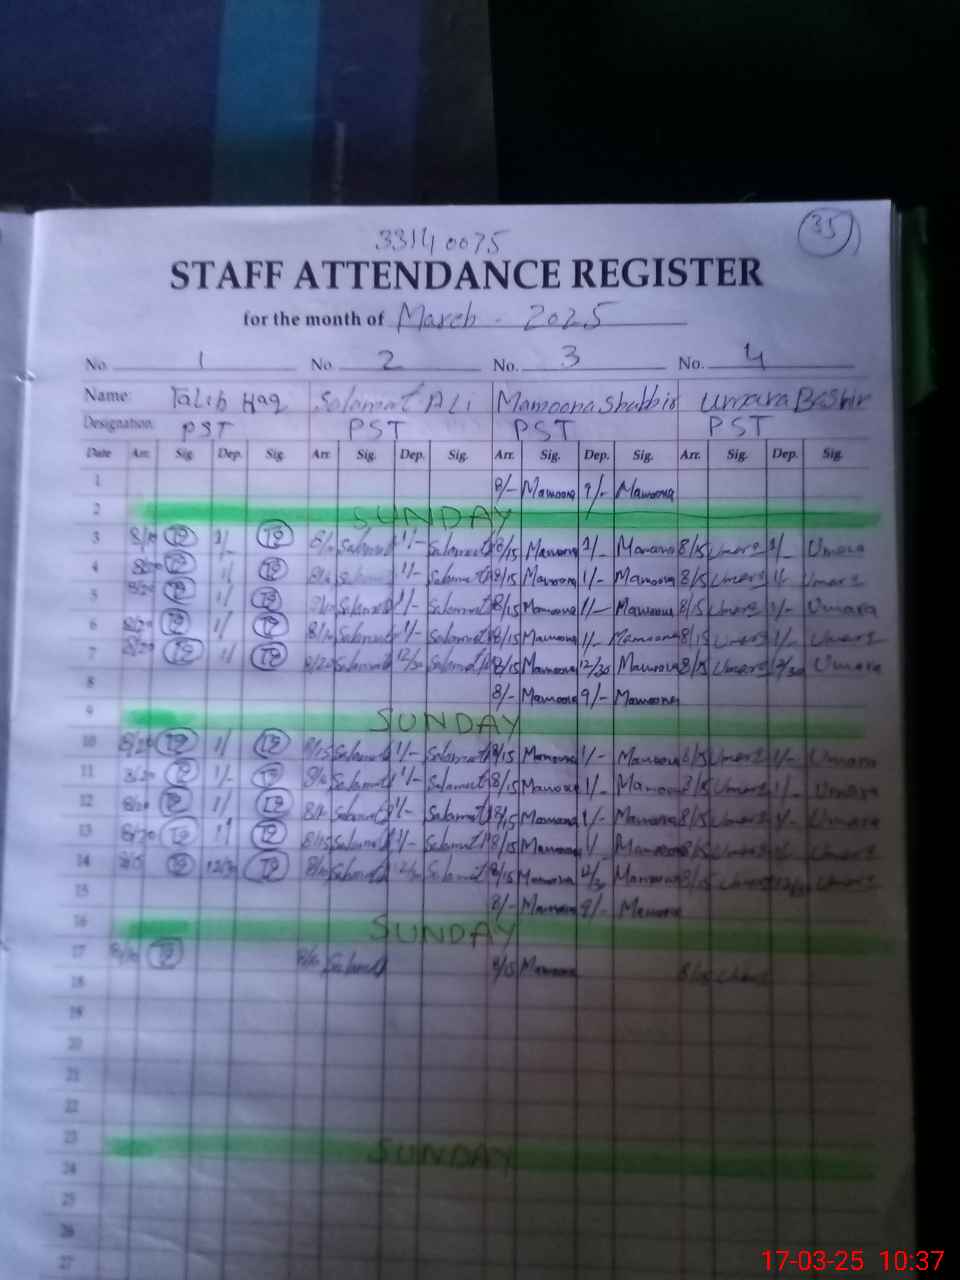 35
33140075
STAFF ATTENDANCE REGISTER
for the month of March - 2025
No. 1 No. 2 No. 3 No. 4
Name: Talib Haq Salamat Ali Mamoona Shabbir Umara Bashir
Designation: PST PST PST PST
Date Arr. Sig. Dep. Sig. Arr. Sig. Dep. Sig. Arr. Sig. Dep. Sig. Arr. Sig. Dep. Sig.
1 8/- Mamoona 9/- Mamoona
2 SUNDAY
3 1/- Salamat 1/- Salamat 8/15 Mamoona 1/- Mamoona 8/15 Umara 1/- Umara
4 1/ Salamat 1/- Salamat 8/15 Mamoona 1/- Mamoona 8/15 Umara 1/- Umara
5 8/20 1/ Salamat 1/- Salamat 8/15 Mamoona 1/- Mamoona 8/15 Umara 1/- Umara
6 8/20 1/ Salamat 1/- Salamat 8/15 Mamoona 1/- Mamoona 8/15 Umara 1/- Umara
7 8/20 1/ 8/20 Salamat 12/30 Salamat 8/15 Mamoona 12/30 Mamoona 8/15 Umara 12/30 Umara
8 8/- Mamoona 9/- Mamoona
9 SUNDAY
10 8/20 1/ 8/15 Salamat 1/- Salamat 8/15 Mamoona 1/- Mamoona 8/15 Umara 1/- Umara
11 8/20 1/- Salamat 1/- Salamat 8/15 Mamoona 1/- Mamoona 8/15 Umara 1/- Umara
12 8/20 1/ Salamat 1/- Salamat 8/15 Mamoona 1/- Mamoona 8/15 Umara 1/- Umara
13 8/20 1/ 8/15 Salamat 1/- Salamat 8/15 Mamoona 1/ Mamoona 8/15 Umara Umara
14 12/30 Salamat 12/30 Salamat 8/15 Mamoona 12/30 Mamoona 8/15 Umara 12/30 Umara
15 8/- Mamoona 9/- Mamoona
16 SUNDAY
17 Salamat 8/15 Mamoona 8/15
18
19
20
21
22
23 SUNDAY
24
25
26
27
17-03-25 10:37